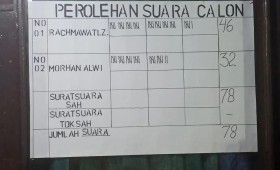 PEROLEHAN SUARA CALON
NO 01 RACHMAWATI.Z. 46
NO 02 MORHAN ALWI 32
SURATSUARA SAH 78
SURATSUARA TDKSAH –
JUMLAH SUARA 78